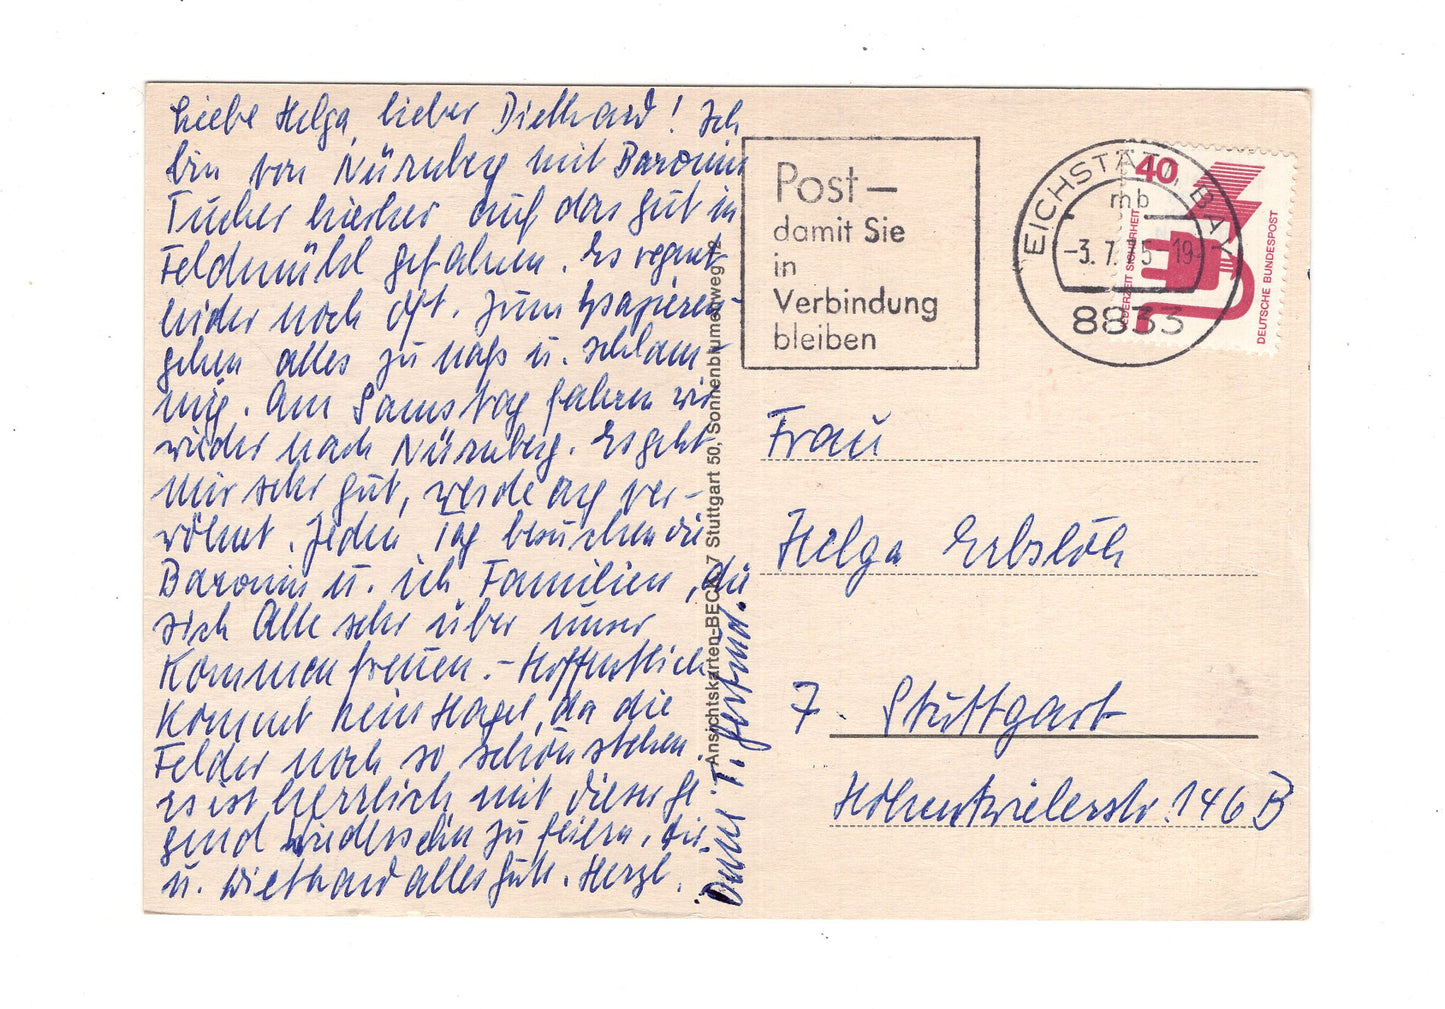 Liebe Helga, lieber Diethard! Ich
bin von Nürnberg mit Baronin
Tucher hierher auf das Gut in
Feldmühl gefahren. Es regnet
leider noch oft. Zum Spazieren-
gehen alles zu naß u. schlam-
mig. Am Samstag fahren wir
wieder nach Nürnberg. Es geht
mir sehr gut, werde arg ver-
wöhnt. Jeden Tag besuchen die
Baronin u. ich Familien, die
sich Alle sehr über unser
Kommen freuen. - Hoffentlich
kommt kein Hagel, da die
Felder noch so schön stehen.
Es ist herrlich mit dieser Ge
gend Wiedersehn zu feiern. Dir
u. Diethard alles Gute. Herzl.
Deine T. Gertrud.
Ansichtskarten-BECK, 7 Stuttgart 50, Sonnenblumenweg 12
Post –
damit Sie
in
Verbindung
bleiben
EICHSTÄTT, BAY
mb
-3.7.75-19
8833
40
JEDERZEIT SICHERHEIT
DEUTSCHE BUNDESPOST
Frau
Helga Erbslöh
7. Stuttgart
Hohentwielerstr. 146 B